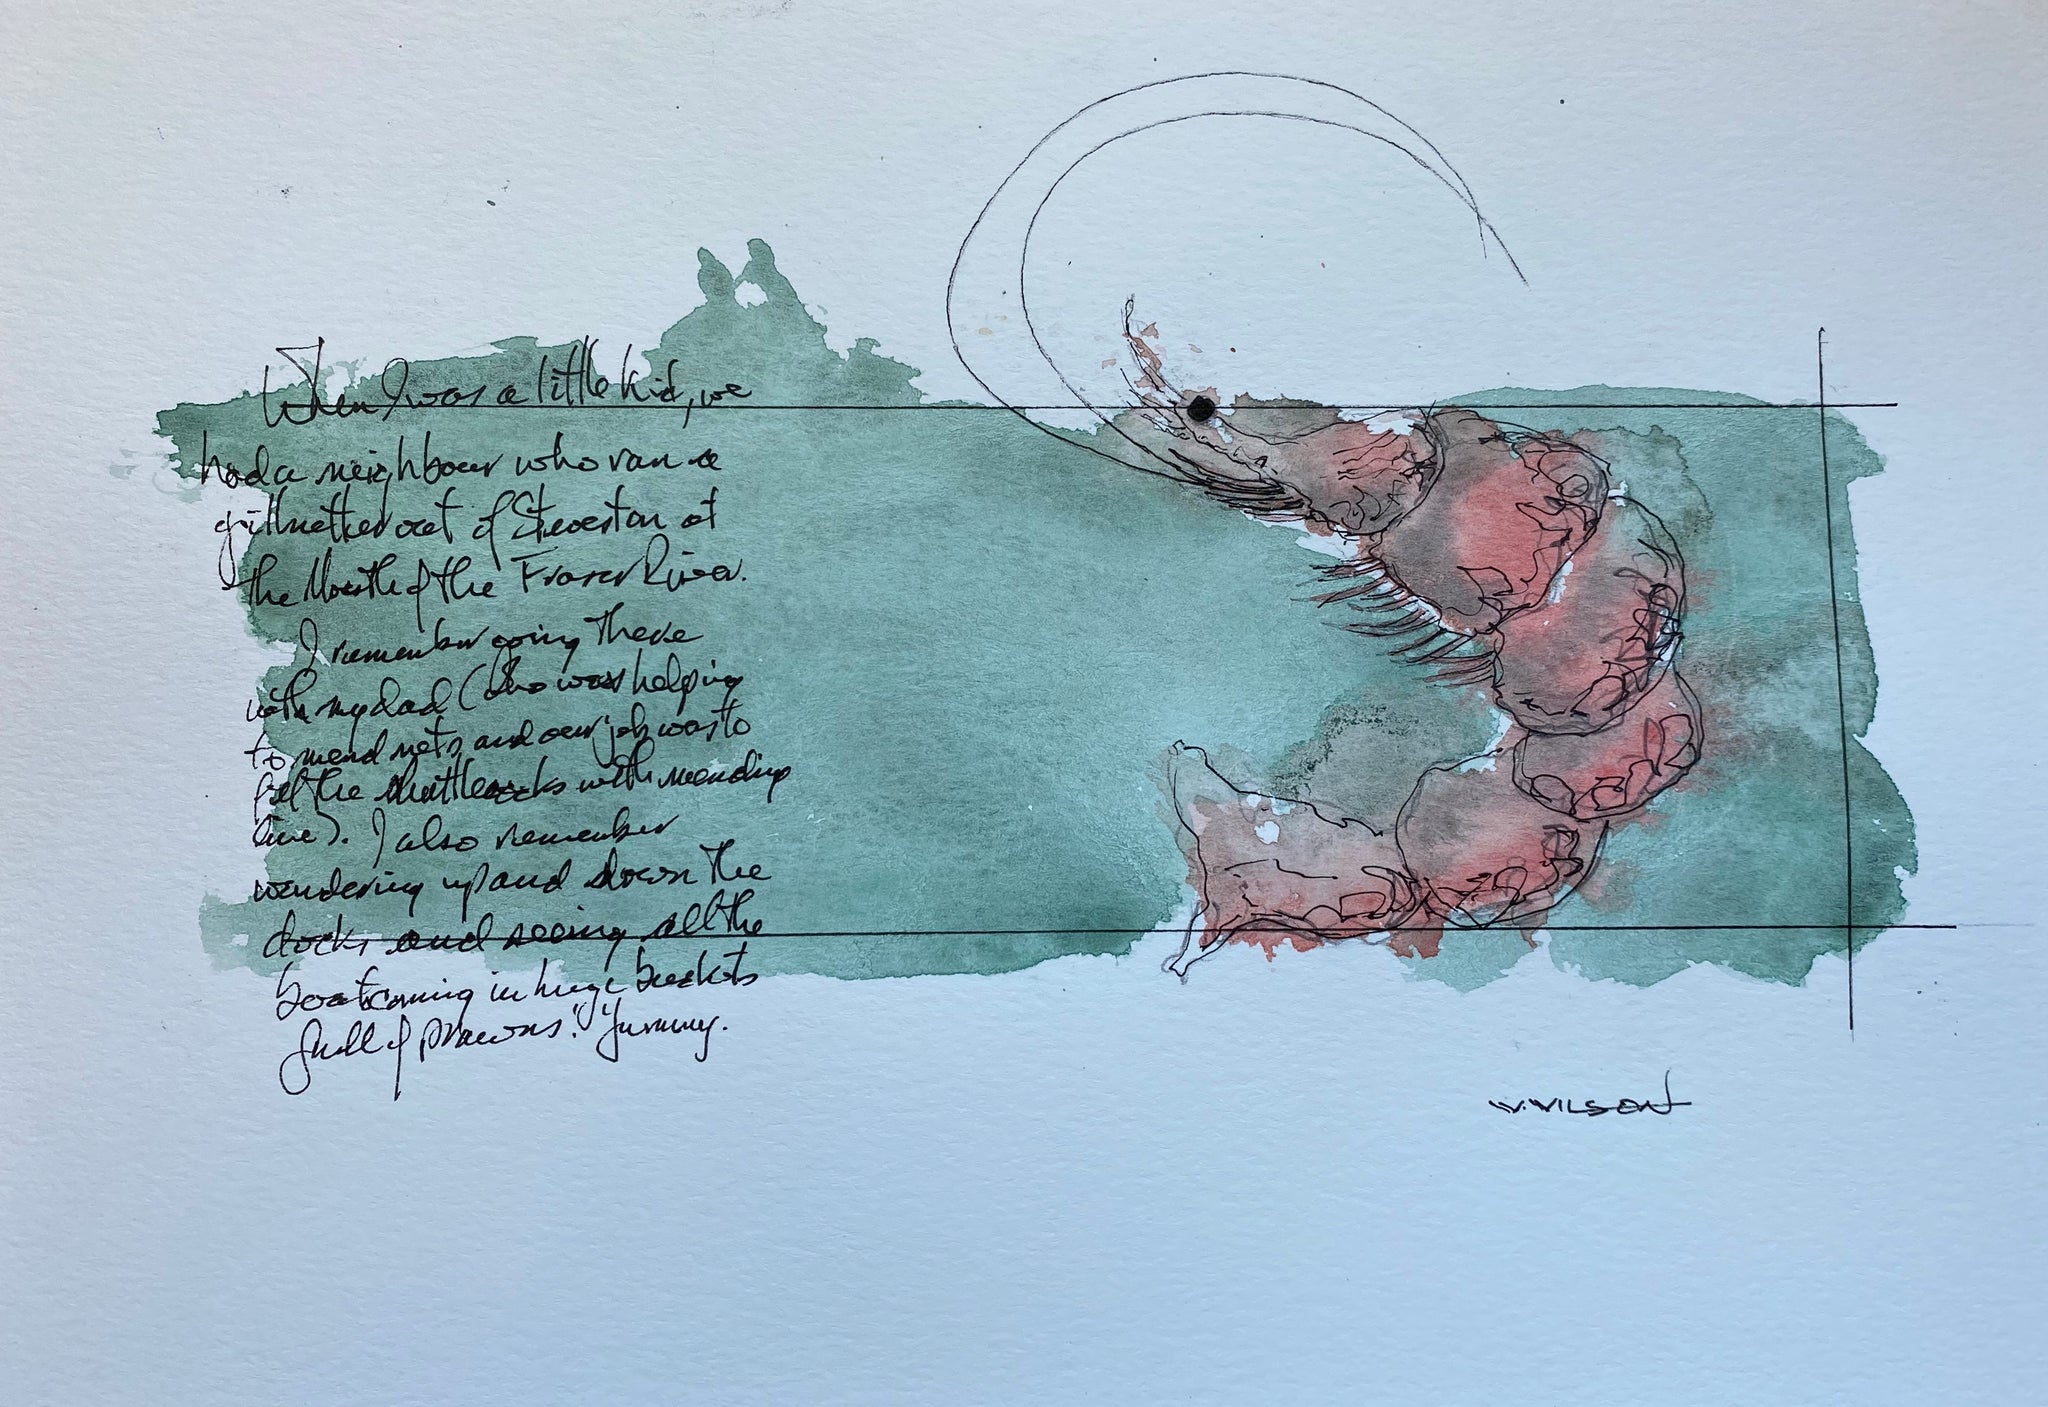 When I was a little kid, we
had a neighbour who ran a
gillnetter out of Steveston at
the Mouth of the Fraser River.
I remember going there
with my dad (who was helping
to mend nets and our job was to
fill the shuttlecocks with mending
line). I also remember
wandering up and down the
docks and seeing all the
boats coming in huge buckets
full of prawns! Yummy.
W. WILSON